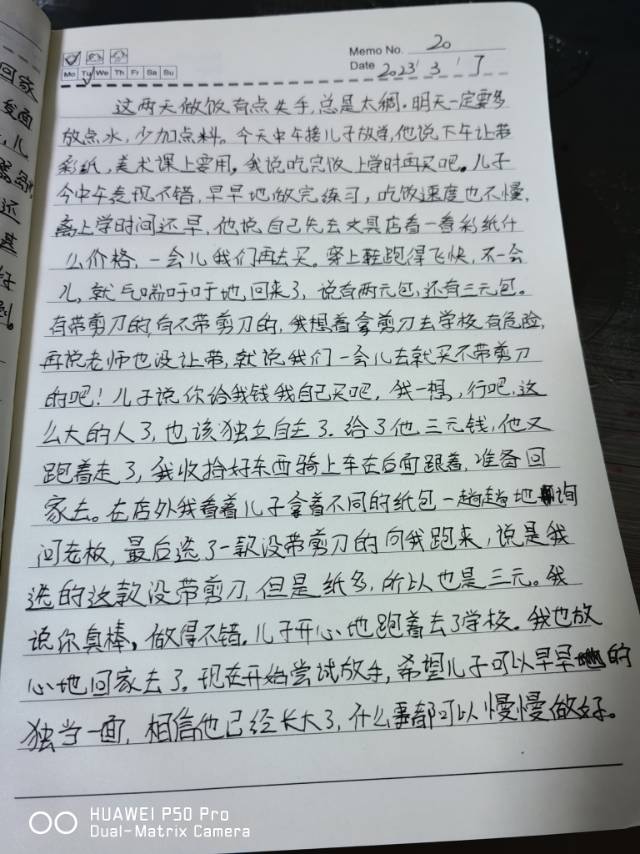 回家
Memo No. 20
Mo Tu We Th Fr Sa Su
Date 2023 / 3 / 7
这两天做饭有点失手,总是太稠。明天一定要多
放点水,少加点料。今天中午接儿子放学,他说下午让带
彩纸,美术课上要用。我说吃完饭上学时再买吧。儿子
今中午表现不错,早早地做完练习,吃饭速度也不慢,
离上学时间还早,他说自己先去文具店看一看彩纸什
么价格,一会儿我们再去买。穿上鞋跑得飞快,不一会
儿,就气喘吁吁地回来了,说有两元包,还有三元包。
有带剪刀的,有不带剪刀的,我想着拿剪刀去学校有危险,
再说老师也没让带,就说我们一会儿去就买不带剪刀
的吧!儿子说你给我钱我自己买吧,我一想,行吧,这
么大的人了,也该独立自主了。给了他三元钱,他又
跑着走了,我收拾好东西骑上车在后面跟着,准备回
家去。在店外我看着儿子拿着不同的纸包一趟趟地询
问老板,最后选了一款没带剪刀的向我跑来,说是我
选的这款没带剪刀,但是纸多,所以也是三元。我
说你真棒,做得不错。儿子开心地跑着去了学校。我也放
心地回家去了。现在开始尝试放手,希望儿子可以早早的
独当一面,相信他已经长大了,什么事都可以慢慢做好。
HUAWEI P50 Pro
Dual-Matrix Camera